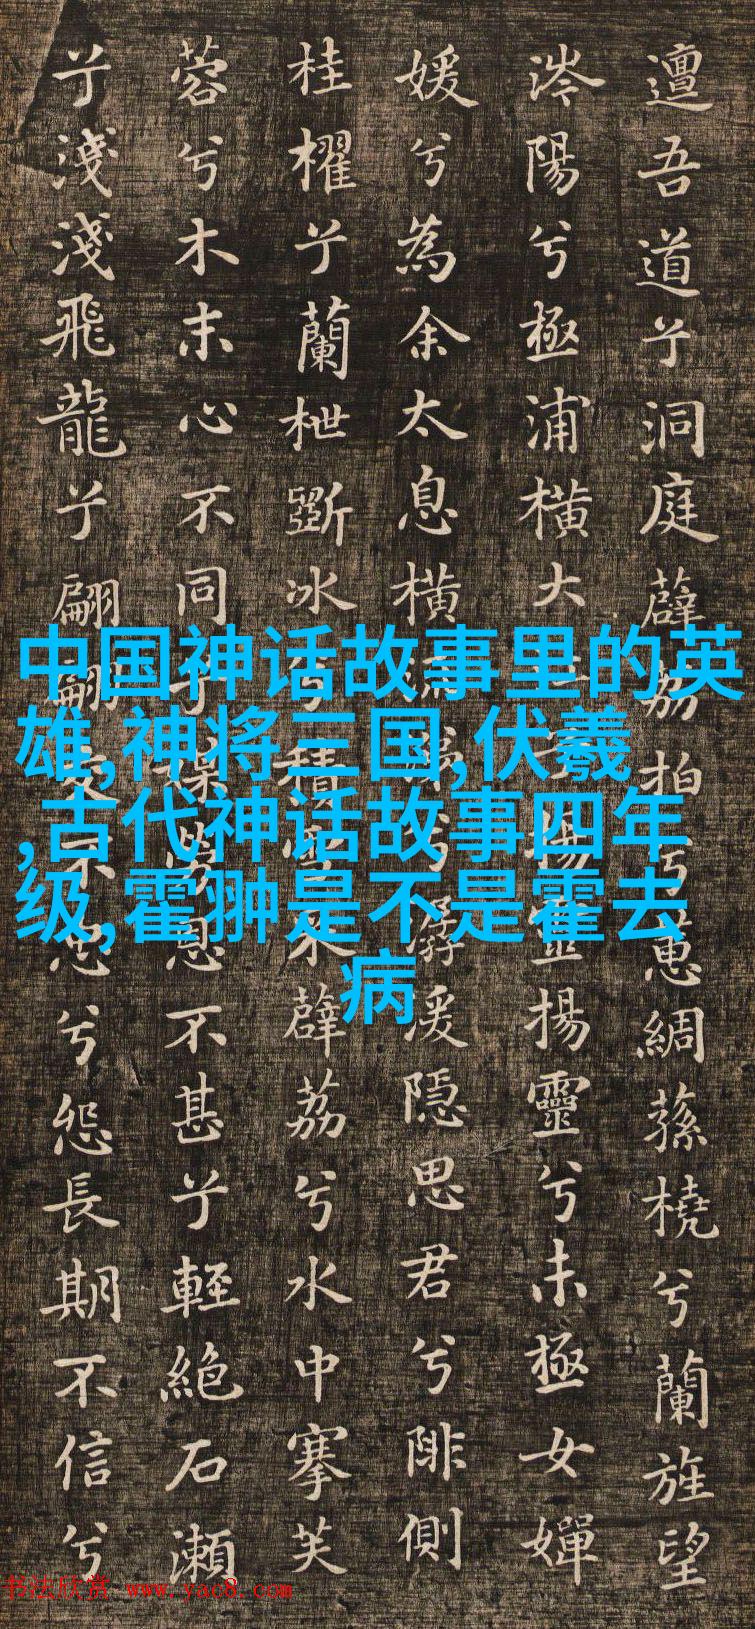 邅吾道兮洞庭薜荔拍兮蕙綢蓀橈兮蘭旌望
涔陽兮極浦橫大江兮揚靈揚靈兮未極女嬋
媛兮為余太息橫流涕兮潺湲隱思君兮陫側
桂櫂兮蘭枻斲冰兮積雪采薜荔兮水中搴芙
蓉兮木末心不同兮媒勞恩不甚兮輕絕石瀨
兮淺淺飛龍兮翩翩交不忠兮怨長期不信兮
中国神话故事里的英
雄,神将三国,伏羲
,古代神话故事四年
级,霍翀是不是霍去
病
书法欣赏 www.yac8.com